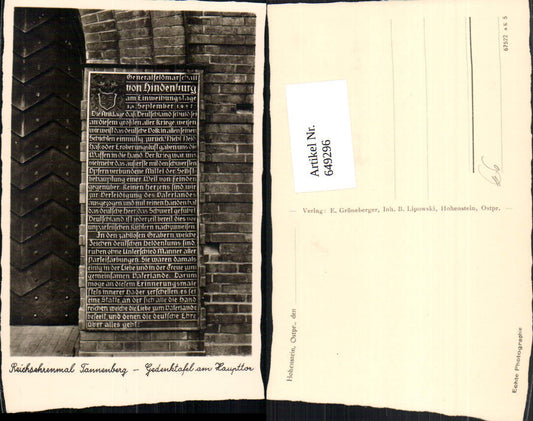 Generalfeldmarschall
von Hindenburg
am Einweihungstage
18. September 1927
Die Anklage daß Deutschland schuld sei
an diesem größten aller Kriege weisen
wir, weil das deutsche Volk in allen seinen
Schichten einmütig zurück! Nicht Neid,
Haß oder Eroberungslust gaben uns die
Waffen in die Hand. Der Krieg war uns
vielmehr das äußerste mit den schwersten
Opfern verbundene Mittel der Selbst-
behauptung einer Welt von Feinden
gegenüber. Reinen Herzens sind wir
zur Verteidigung des Vaterlandes
ausgezogen und mit reinen Händen hat
das deutsche Heer das Schwert geführt.
Deutschland ist jederzeit bereit dies vor
unparteiischen Richtern nachzuweisen.
In den zahllosen Gräbern, welche
Zeichen deutschen Heldentums sind,
ruhen ohne Unterschied Männer aller
Parteifärbungen. Sie waren damals
einig in der Liebe und in der Treue zum
gemeinsamen Vaterlande. Darum
möge an diesem Erinnerungsmale
stets innerer Hader zerschellen, es sei
eine Stätte, an der sich alle die Hand
reichen, welche die Liebe zum Vaterlande
beseelt, und denen die deutsche Ehre
über alles geht!
Reichsehrenmal Tannenberg – Gedenktafel am Haupttor
Artikel Nr.
649296
67572 a 6 5
Verlag: E. Grüneberger, Inh. B. Lipowski, Hohenstein, Ostpr.
Hohenstein, Ostpr., den
Echte Photographie